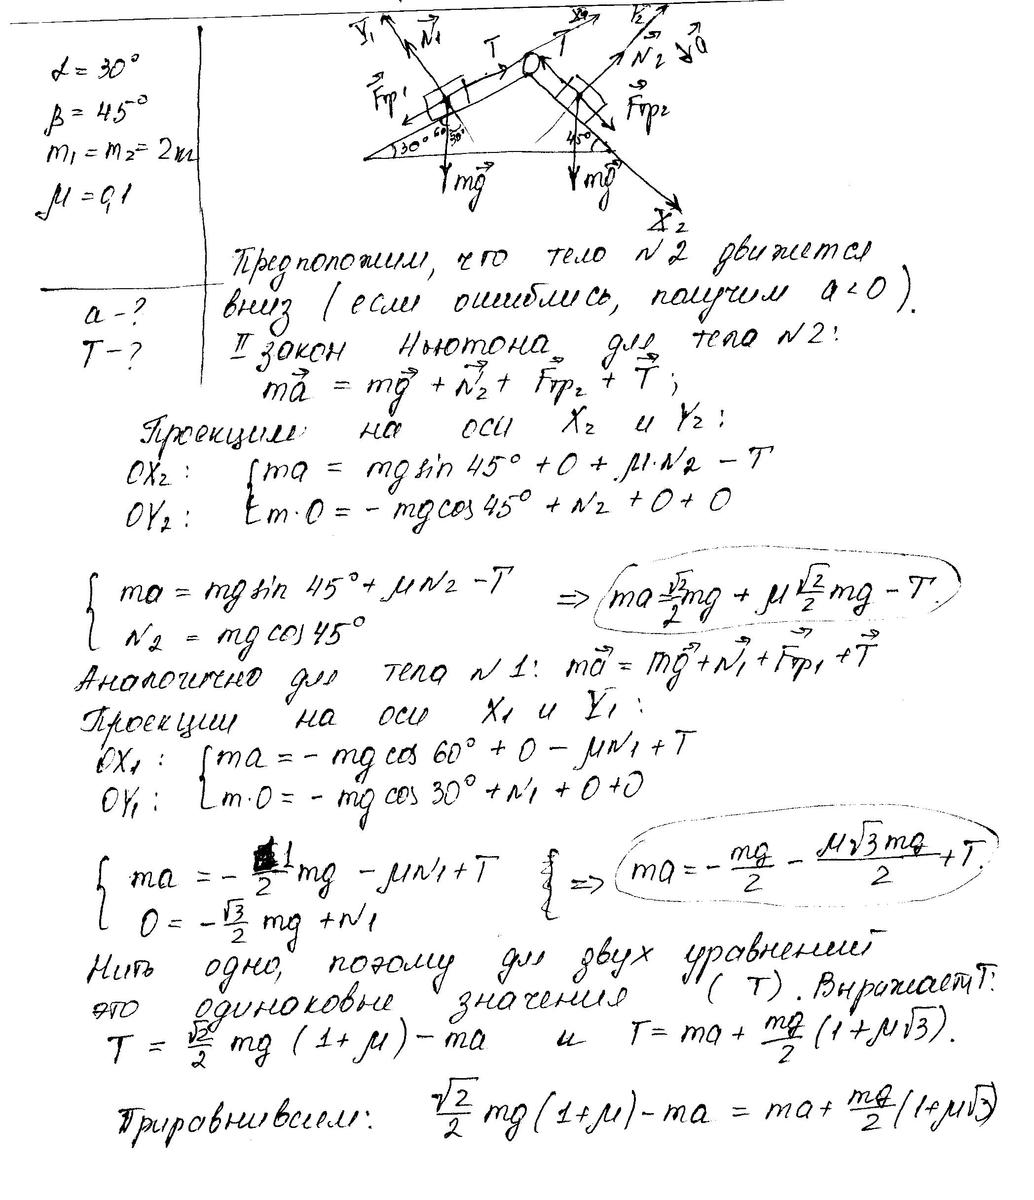 α = 30°
β = 45°
m₁ = m₂ = 2 кг
μ = 0,1
a - ?
T - ?
Y₁ N₁ T X₁ T Y₂ N₂ a
Fтр₁ Fтр₂
30° 60° 30° 45°
mg mg
X₂
Предположим, что тело N2 движется
вниз (если ошиблись, получим a < 0).
II закон Ньютона для тела N2:
ma = mg + N₂ + Fтр₂ + T;
Проекции на оси X₂ и Y₂:
OX₂: { ma = mg sin 45° + 0 + μ·N₂ - T
OY₂: { m·0 = - mg cos 45° + N₂ + 0 + 0
{ ma = mg sin 45° + μN₂ - T => ma √2/2 mg + μ √2/2 mg - T.
{ N₂ = mg cos 45°
Аналогично для тела N1: ma = mg + N₁ + Fтр₁ + T
Проекции на оси X₁ и Y₁:
OX₁: { ma = - mg cos 60° + 0 - μN₁ + T
OY₁: { m·0 = - mg cos 30° + N₁ + 0 + 0
{ ma = - 1/2 mg - μN₁ + T } => ma = - mg/2 - μ√3mg/2 + T.
{ 0 = - √3/2 mg + N₁
Нить одно, поэтому для двух уравнений
это одинаковые значения (T). Выражаем T:
T = √2/2 mg (1 + μ) - ma и T = ma + mg/2 (1 + μ√3).
Приравниваем: √2/2 mg (1 + μ) - ma = ma + mg/2 (1 + μ√3)